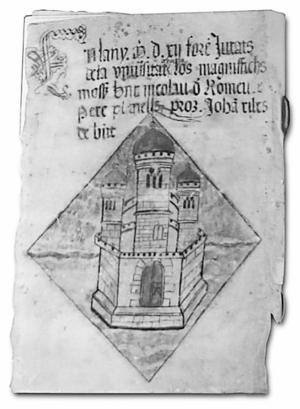 En lany M d xij foren Jurats
dela vniuersitat los magniffichs
mossen bnt nicolau d Romeu e
Pere planells pros. Johã riles
de bitt